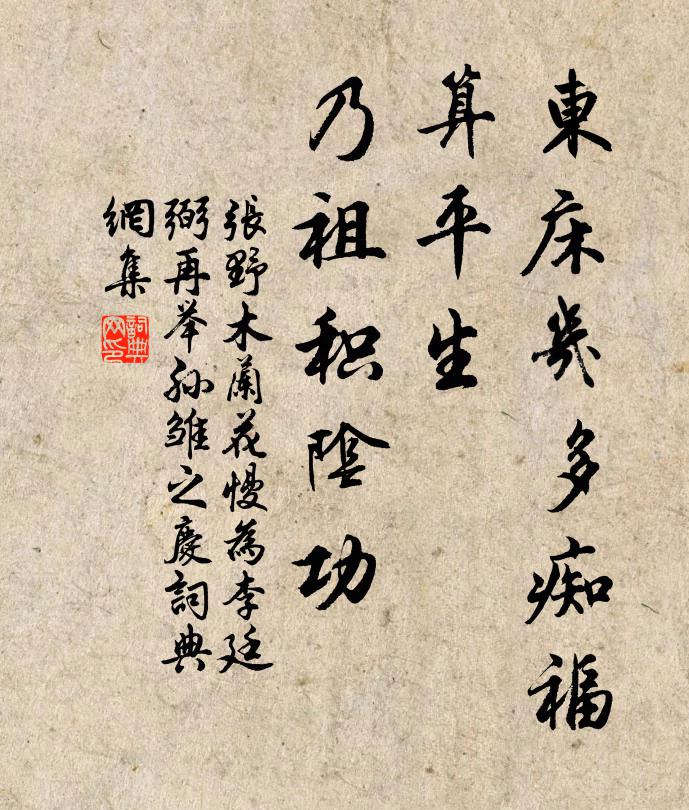 東床几多痴福
算平生
乃祖积陰功
張野木蘭花慢為李廷
弼再举孙雏之慶詞典
網集
詞典
网印